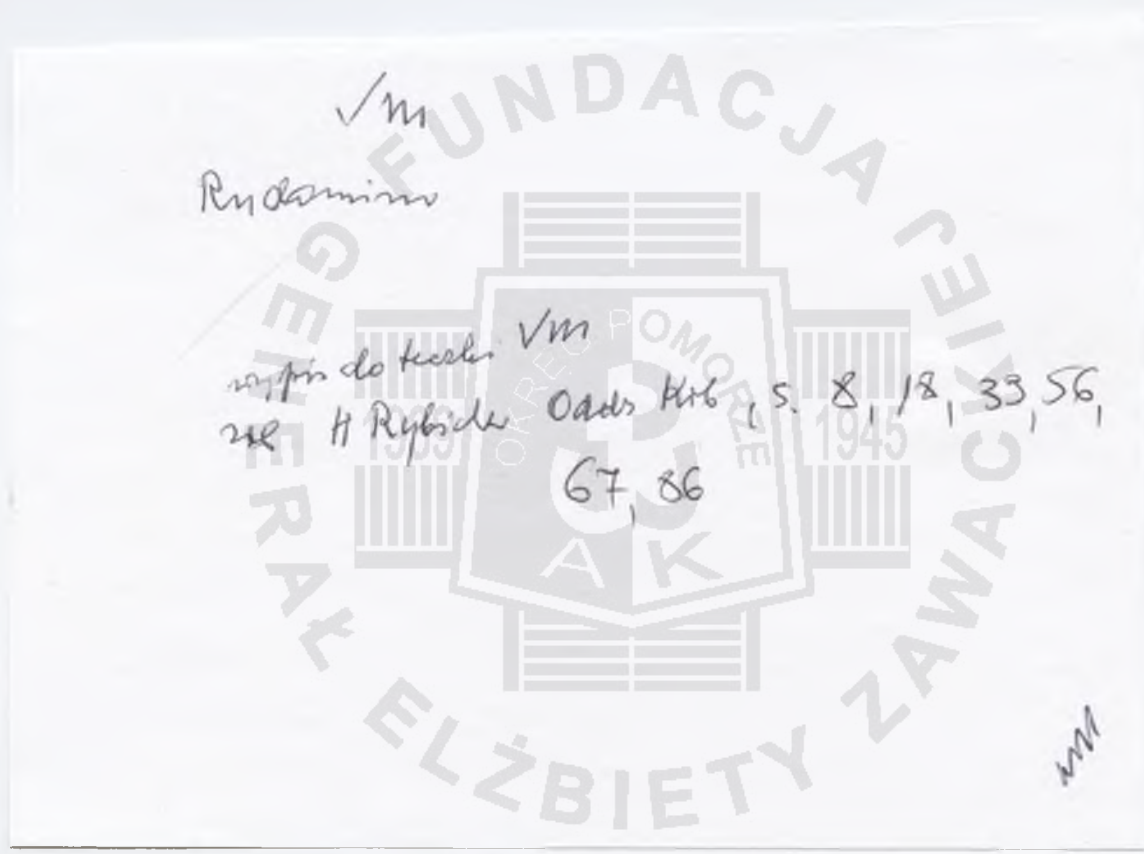 VM
Rudomino
wypis do teczki VM
H Rybicka Odds Kob, s. 8, 18, 33, 56,
67, 86
FUNDACJA
GENERAŁ ELŻBIETY ZAWACKIEJ
OKRĘG POMORZE
1939 1945
AK